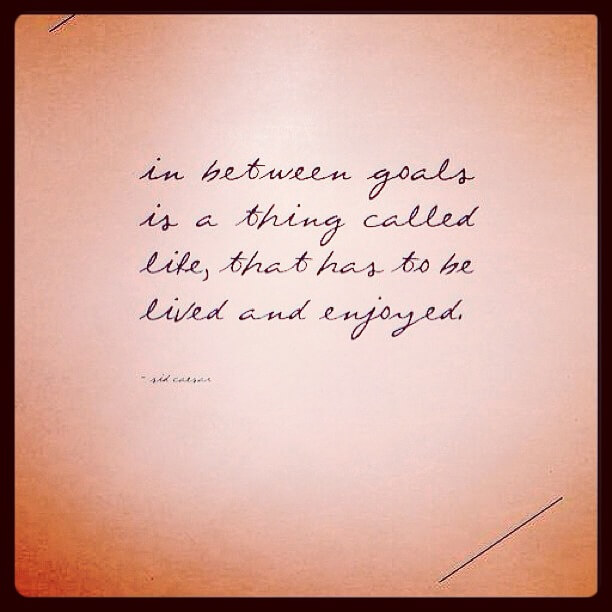 in between goals
is a thing called
life, that has to be
lived and enjoyed.
- sid caesar